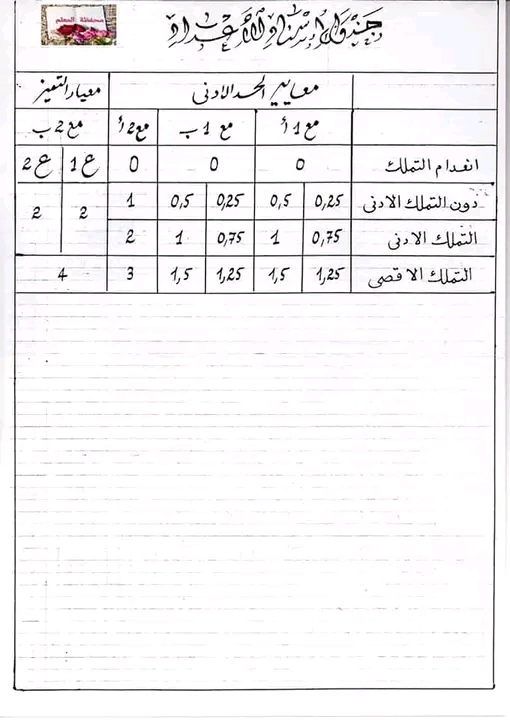 محفظة المعلم
جدول إسناد الأعداد
معايير الحد الادنى معيار التميز
مع 1 أ مع 1 ب مع 2 أ مع 2 ب
انعدام التملك 0 0 0 ع 1 ع 2
دون التملك الادنى 0,25 0,5 0,25 0,5 1 2 2
التملك الادنى 0,75 1 0,75 1 2
التملك الاقصى 1,25 1,5 1,25 1,5 3 4